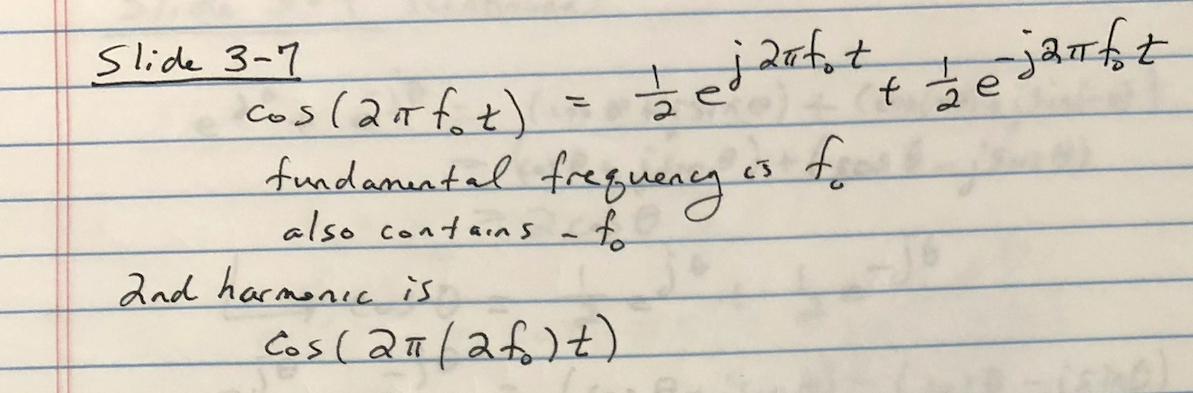 Slide 3-7
cos(2πf₀t) = 1/2 e^{j2πf₀t} + 1/2 e^{-j2πf₀t}
fundamental frequency is f₀
also contains -f₀
2nd harmonic is
cos(2π(2f₀)t)